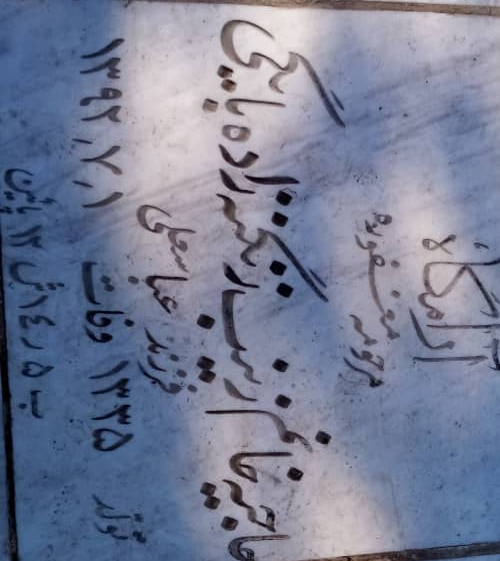 آرامگاه
مرحومه مغفوره
حاجیه خانم زینب زنگنه زاده بایگی
فرزند عباسعلی
تولد ۱۳۳۵ وفات ۱۳۹۲٫۷٫۱
ب ۵ ر ۱٤ ش ۱۲ پائین